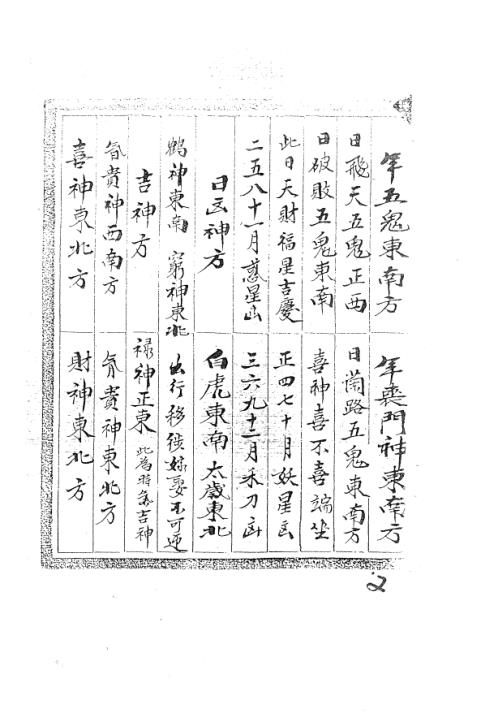 年五鬼東南方 年喪門神東南方
日飛天五鬼正西 日蘭路五鬼東南方
日破敗五鬼東南 喜神喜不喜端坐
此日天財福星吉慶 正四七十月妖星凶
二五八十一月惹星凶 三六九十二月禾刀凶
日凶神方 白虎東南 太歲東北
鶴神東南 窮神東北 出行移徙嫁娶不可迎
吉神方 祿神正東 此為時家吉神
貴神西南方 貴神東北方
喜神東北方 財神東北方
2